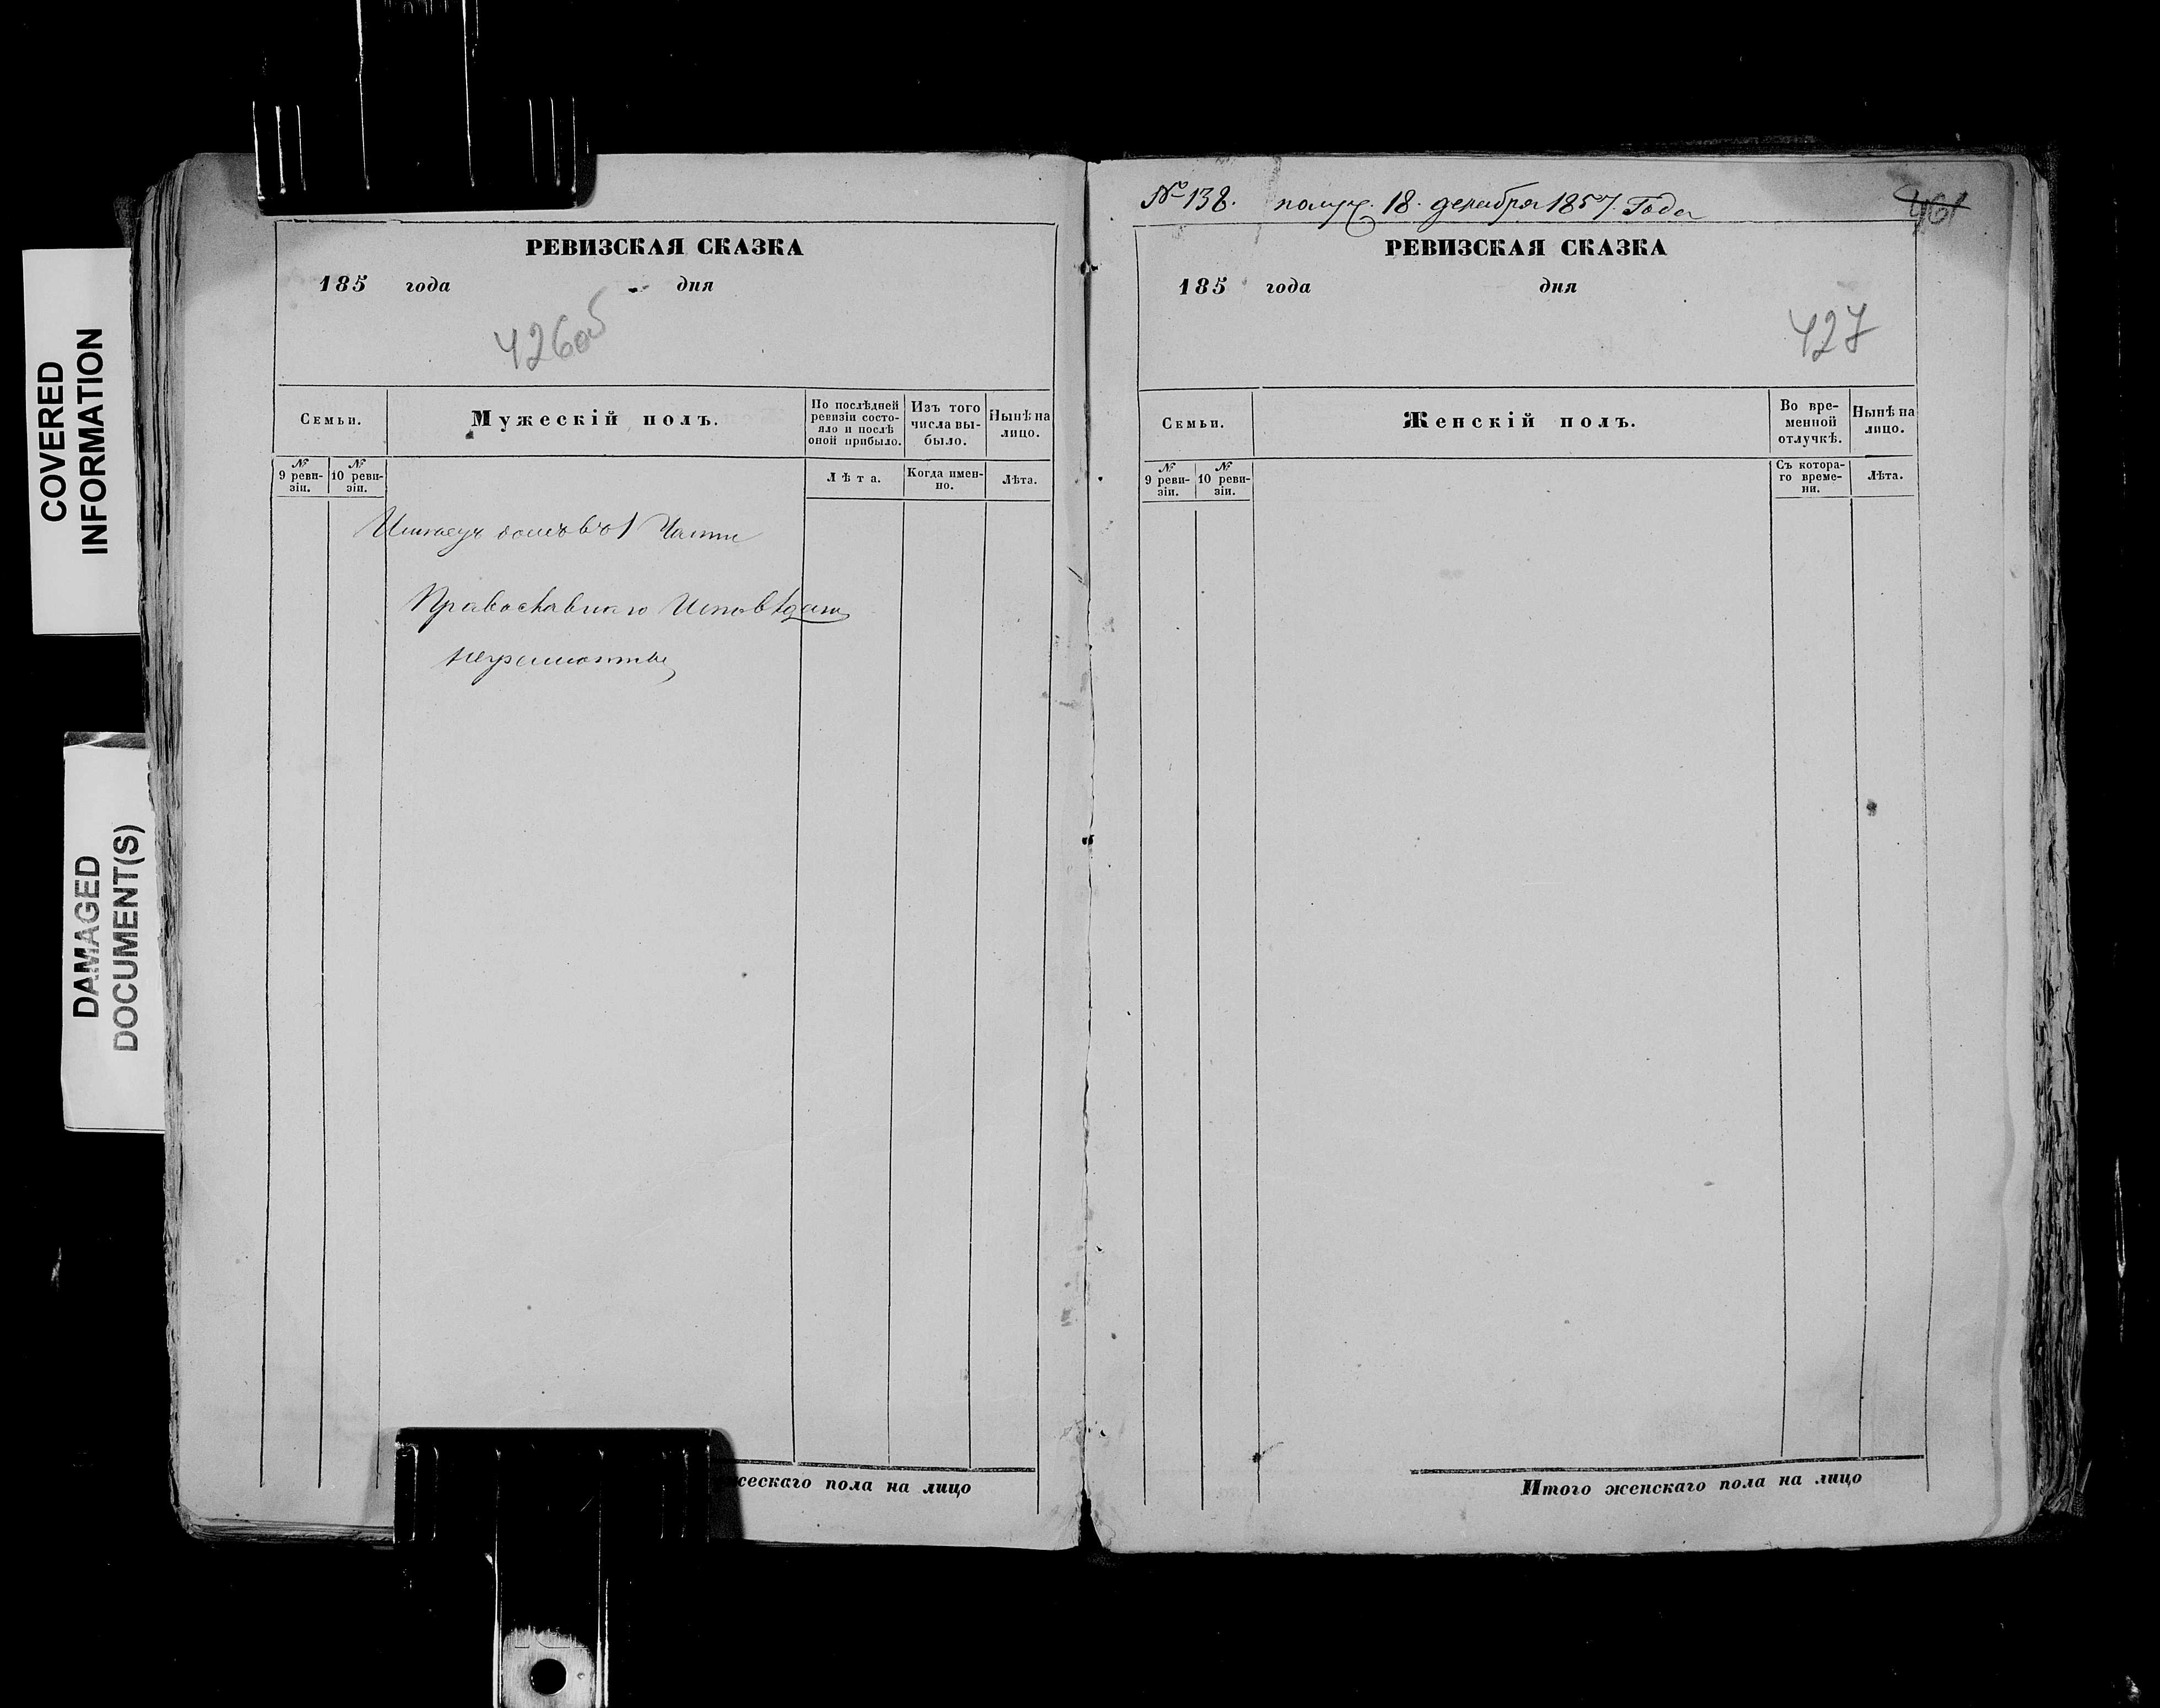 COVERED
INFORMATION
DAMAGED
DOCUMENT(S)
РЕВИЗСКАЯ СКАЗКА
185 года дня
426об
Семьи.
Мужескій полъ.
По послѣдней
ревизіи состо-
яло и послѣ
оной прибыло.
Изъ того
числа вы-
было.
Нынѣ на
лицо.
№
9 реви-
зіи.
№
10 реви-
зіи.
Лѣта.
Когда имен-
но.
Лѣта.
Имѣетъ домъ въ 1 Части
Православнаго Исповѣдани
неграмотны
жескаго пола на лицо
№ 138. получ. 18. декабря 1857. Года
461
РЕВИЗСКАЯ СКАЗКА
185 года дня
427
Семьи.
Женскій полъ.
Во вре-
менной
отлучкѣ.
Нынѣ на
лицо.
№
9 реви-
зіи.
№
10 реви-
зіи.
Съ котора-
го време-
ни.
Лѣта.
Итого женскаго пола на лицо